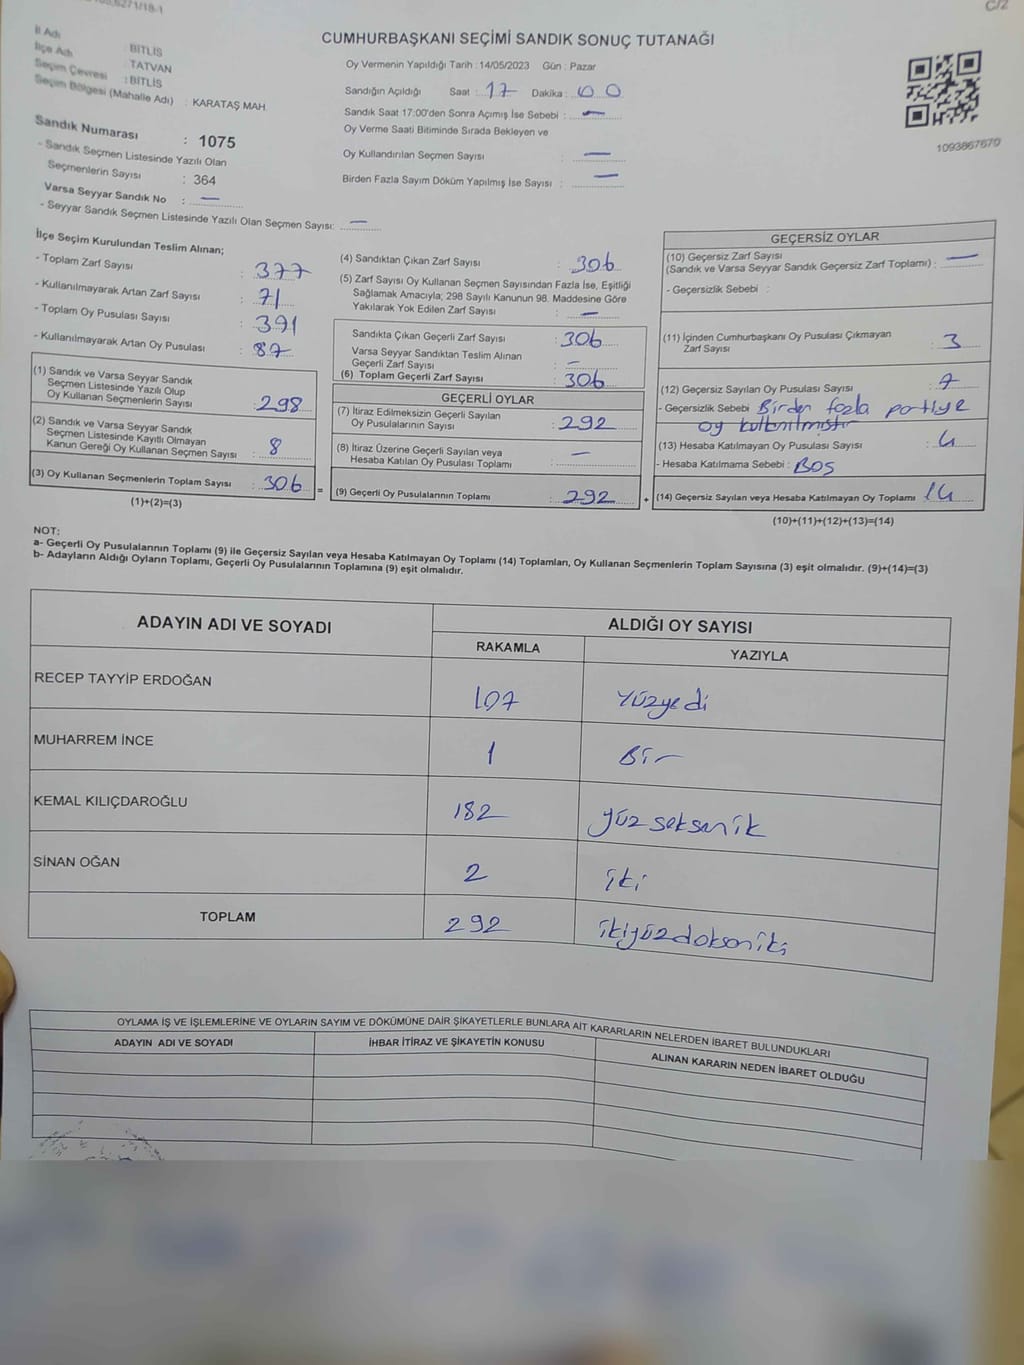 C/2
CUMHURBAŞKANI SEÇİMİ SANDIK SONUÇ TUTANAĞI
İl Adı : BİTLİS
İlçe Adı : TATVAN
Seçim Çevresi : BİTLİS
Seçim Bölgesi (Mahalle Adı) : KARATAŞ MAH
Sandık Numarası : 1075
- Sandık Seçmen Listesinde Yazılı Olan
Seçmenlerin Sayısı : 364
Varsa Seyyar Sandık No : —
- Seyyar Sandık Seçmen Listesinde Yazılı Olan Seçmen Sayısı: —
Oy Vermenin Yapıldığı Tarih : 14/05/2023 Gün : Pazar
Sandığın Açıldığı Saat : 17 Dakika : 00
Sandık Saat 17:00'den Sonra Açımış İse Sebebi : —
Oy Verme Saati Bitiminde Sırada Bekleyen ve
Oy Kullandırılan Seçmen Sayısı : —
Birden Fazla Sayım Döküm Yapılmış İse Sayısı : —
1093867670
İlçe Seçim Kurulundan Teslim Alınan;
- Toplam Zarf Sayısı : 377
- Kullanılmayarak Artan Zarf Sayısı : 71
- Toplam Oy Pusulası Sayısı : 391
- Kullanılmayarak Artan Oy Pusulası : 87
(1) Sandık ve Varsa Seyyar Sandık
Seçmen Listesinde Yazılı Olup
Oy Kullanan Seçmenlerin Sayısı : 298
(2) Sandık ve Varsa Seyyar Sandık
Seçmen Listesinde Kayıtlı Olmayan
Kanun Gereği Oy Kullanan Seçmen Sayısı : 8
(3) Oy Kullanan Seçmenlerin Toplam Sayısı : 306 =
(1)+(2)=(3)
(4) Sandıktan Çıkan Zarf Sayısı : 306
(5) Zarf Sayısı Oy Kullanan Seçmen Sayısından Fazla İse, Eşitliği
Sağlamak Amacıyla; 298 Sayılı Kanunun 98. Maddesine Göre
Yakılarak Yok Edilen Zarf Sayısı : —
Sandıkta Çıkan Geçerli Zarf Sayısı : 306
Varsa Seyyar Sandıktan Teslim Alınan
Geçerli Zarf Sayısı : —
(6) Toplam Geçerli Zarf Sayısı : 306
GEÇERLİ OYLAR
(7) İtiraz Edilmeksizin Geçerli Sayılan
Oy Pusulalarının Sayısı : 292
(8) İtiraz Üzerine Geçerli Sayılan veya
Hesaba Katılan Oy Pusulası Toplamı : —
(9) Geçerli Oy Pusulalarının Toplamı : 292 +
GEÇERSİZ OYLAR
(10) Geçersiz Zarf Sayısı
(Sandık ve Varsa Seyyar Sandık Geçersiz Zarf Toplamı) : —
- Geçersizlik Sebebi :
(11) İçinden Cumhurbaşkanı Oy Pusulası Çıkmayan
Zarf Sayısı : 3
(12) Geçersiz Sayılan Oy Pusulası Sayısı : 7
- Geçersizlik Sebebi Birden fazla partiye
oy kullanılmıştır
(13) Hesaba Katılmayan Oy Pusulası Sayısı : 4
- Hesaba Katılmama Sebebi : BOŞ
(14) Geçersiz Sayılan veya Hesaba Katılmayan Oy Toplamı : 14
(10)+(11)+(12)+(13)=(14)
NOT:
a- Geçerli Oy Pusulalarının Toplamı (9) ile Geçersiz Sayılan veya Hesaba Katılmayan Oy Toplamı (14) Toplamları, Oy Kullanan Seçmenlerin Toplam Sayısına (3) eşit olmalıdır. (9)+(14)=(3)
b- Adayların Aldığı Oyların Toplamı, Geçerli Oy Pusulalarının Toplamına (9) eşit olmalıdır.
ADAYIN ADI VE SOYADI ALDIĞI OY SAYISI
RAKAMLA YAZIYLA
RECEP TAYYİP ERDOĞAN 107 Yüzyedi
MUHARREM İNCE 1 Bir
KEMAL KILIÇDAROĞLU 182 yüz seksenik
SİNAN OĞAN 2 iki
TOPLAM 292 ikiyüzdoksaniki
OYLAMA İŞ VE İŞLEMLERİNE VE OYLARIN SAYIM VE DÖKÜMÜNE DAİR ŞİKAYETLERLE BUNLARA AİT KARARLARIN NELERDEN İBARET BULUNDUKLARI
ADAYIN ADI VE SOYADI İHBAR İTİRAZ VE ŞİKAYETİN KONUSU ALINAN KARARIN NEDEN İBARET OLDUĞU